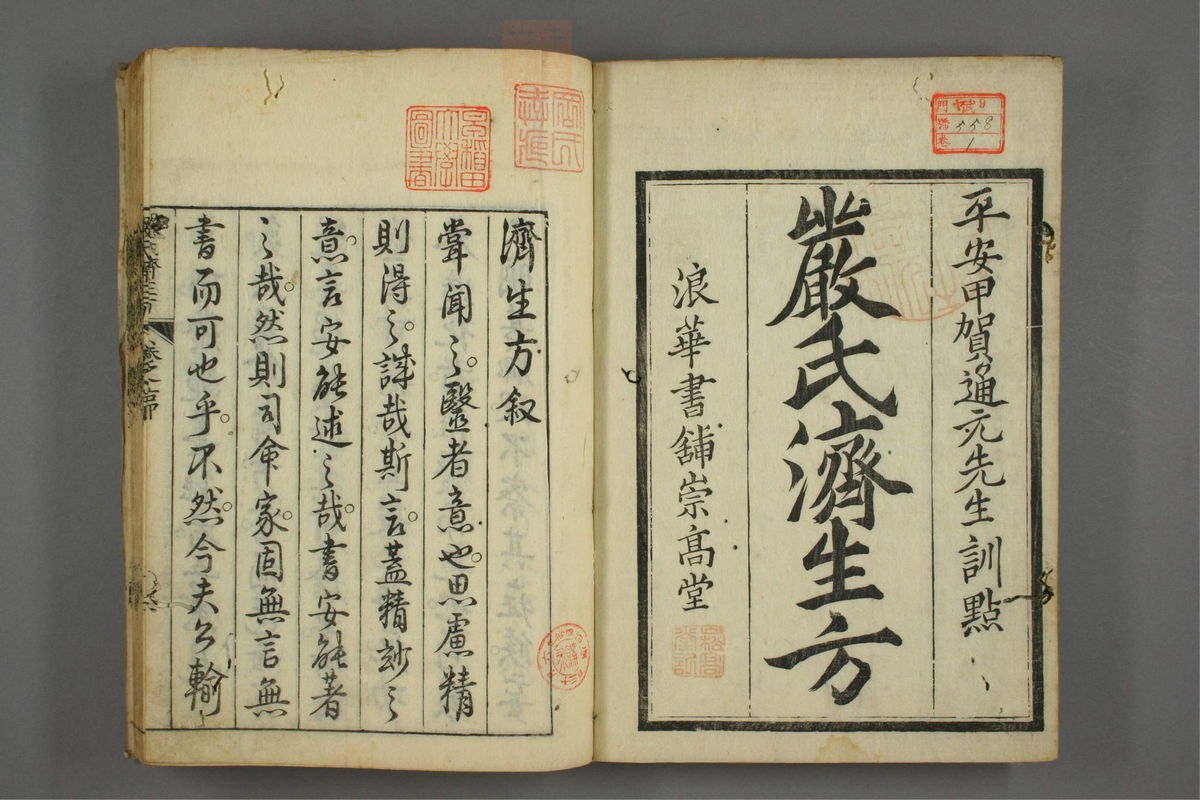 平安甲賀通元先生訓點
嚴氏濟生方
浪華書舖崇高堂
門 9
號 558
卷 1
早稲田大學圖書
濟生方叙
嘗聞之。醫者意也。思慮精
則得之。誠哉斯言。蓋精玅之
意。言安能述之哉。書安能著
之哉。然則司命家。固無言無
書而可也乎。不然。今夫公輸